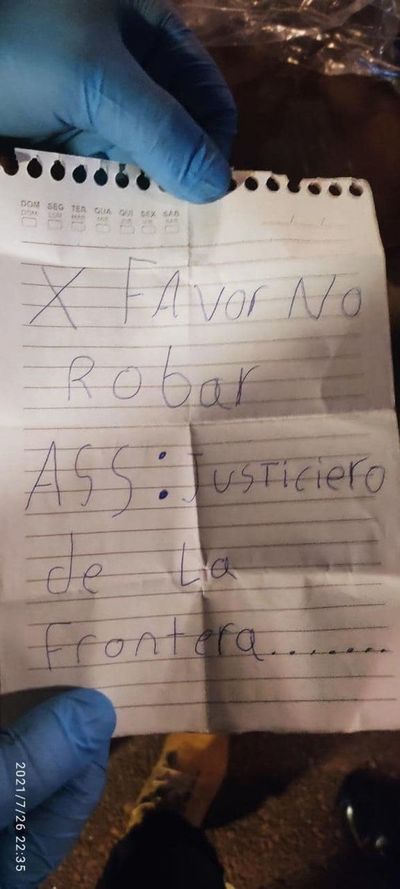 DOM SEG TER QUA QUI SEX SAB
DOM LUN MAR MIE JUE VIE SAB
X FAvor No
Robar
ASS: Justiciero
de La
Frontera........
2021/7/26 22:35